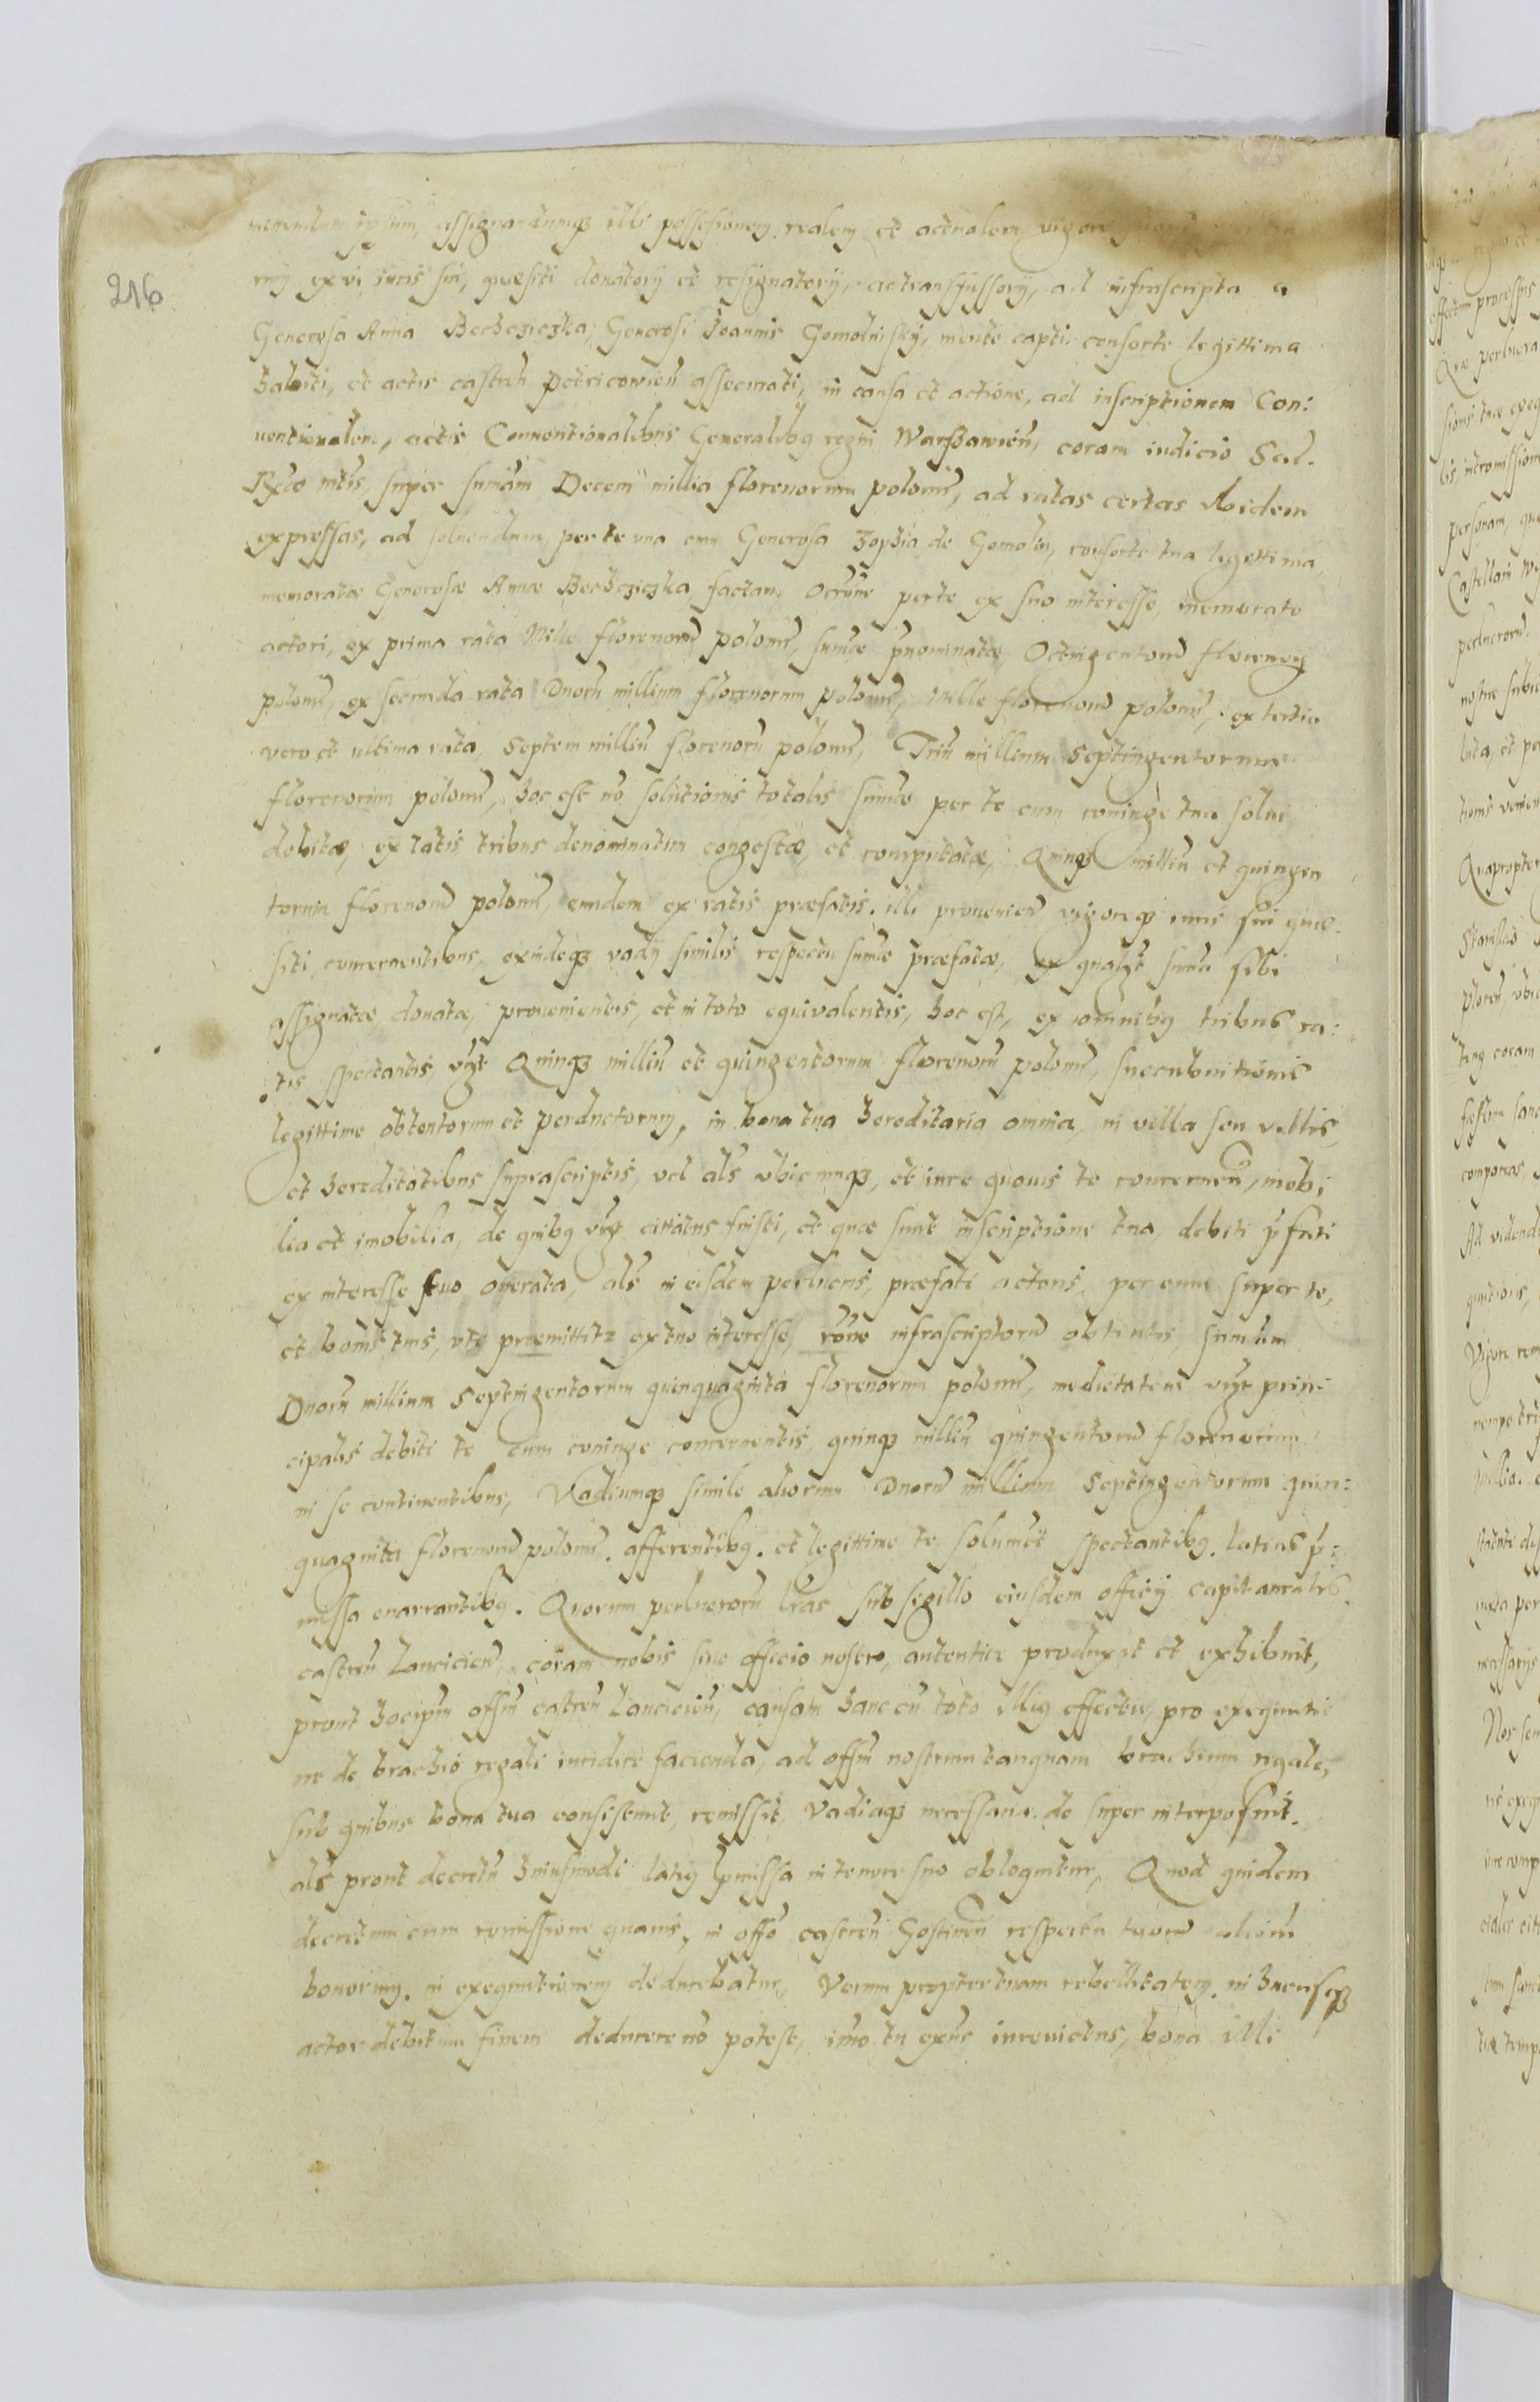 216
mittendum ipsum, assignandumq̃ illi possesionem realem et actualem vigore
rum ex vi iuris sui, quæsiti donatorij et resignatorij, ac transfussorij, ad infrascripta a
Generosa Anna Bechcziczka, Generosi Joannis Gomolnisky, mente capti consorte legittima
habiti, et actis castreñ petricowieñ assecurati, in causa et actione, ad inscriptionem Con:
uentionalem, actis Conuentionalibus Generalibq regni Warszawieñ, coram iudicio Sac.
super sumam̃ Decem millia florenorum poloniĩ, ad ratas certas ibidem
expressas, ad soluendum per te vna cum Generosa Zophia de Gomolin, consorte tua legittima
memoratæ Generosæ Annæ Bechcziczka factam. per te ex suo interesse, memorato
actori, ex prima rata Mille florenorũ polonĩ, sumæ p̃nominatæ, Octingentorũ florenorũ
polonĩ, ex secunda rata Duorũ millium florenorum polonĩ, Mille florenorũ polonĩ, ex tertia
vero et ultima rata, Septem milliũ florenorũ polonĩ, Triũ millium Septingentorum
florenorum polonĩ, hoc est nõ solutionis totalis sumæ per te cum coniuge tua solui
debitæ, ex ratis tribus denominatim congestæ, et computatæ, Quinq̃ milliũ et quingen
torum florenorũ polonĩ, eundem ex ratis præfatis illi prouenieñ vigoreq̃ iuris sui quæ:
siti concernentibus, exindeq̃ vadij similis respectu sumæ præfatæ, ex sumã sibi
assignatæ donatæ, prouenientis, et in toto equiualentis, hoc est, ex omnibq tribus ra:
tis spectantis, vzt Quinq̃ milliũ et quingentorum florenorũ polonĩ, succubuitionis
legittime obtentorum et perductorum, in bona tua hereditaria omnia, in villa seu villis,
et hereditatibus suprascriptis, vel als̃ vbicunq̃, et iure quouis te concerneñ, mobi
lia et imobilia, de quibq vzt cittatus fuisti, et quæ sunt inscriptione tua debiti p̃fati
ex interesse suo onerata, als̃ in eisdem perlucris, præfati actoris, per eum super te,
et bonis tuis, vtj præmittitr ex tuo interesse, rõne infrascriptorũ obtentis, sumam
Duorũ millium Septingentorum quinquaginta florenorum polonĩ, medietatem vzt prin:
cipalis debiti te cum coniuge concernentis, quinq̃ milliũ quingentorũ florenorum
in se continentibus, Vadiumq̃ simile aliorum Duorũ millium Septingentorum quin:
quaginta florenorũ polonĩ. afferentibq. et legittime te solummet spectantibq. latius p̃:
missa enarrantibq. Quorum perlucrorũ lr̃as sub sigillo eiusdem officij capitanealis
castreñ Lancicieñ, coram nobis siue officio nostro, autentice produxit et exhibuit,
prout hocipm̃ offm̃ castreñ Lancicieñ, causam hanc cũ toto illiq effectu, pro exequutio
ne de brachio regali iuridice facienda, ad offm̃ nostrum tanquam brachium regale,
sub quibus bona tua consistunt, remissit, Vadiaq̃ necessaria de super interposuit.
als̃ prout decretũ huiusmodi latiq p̃missa in tenore suo obloquitur, Quod quidem
decretum cum remissione quauis, in offo castreñ Gostineñ respectu tuorũ aliorũ
bonorum. in exequutionem deducebatur, Verum propter tuam rebellitatem. in hucusq̃
actor debitum finem deducere nõ potest, imo tu exñs iureuictus, bona illi